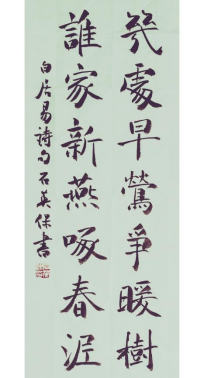 幾處早鶯爭暖樹
誰家新燕啄春泥
白居易詩句 石英保書